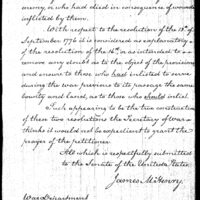 enemy, or who died in consequence of wounds
inflicted by them.
With respect to the resolution of the 18th of
September 1776 it is considered as explanatory
of the resolution of the 16th as intended to re-
move any doubts as to the object of the provisions
and ensure to those who had enlisted to serve
during the war previous to its passage the same
bounty and land, as to those who should enlist.
Such appearing to be the true construction
of these two resolutions the Secretary of War
thinks it would not be expedient to grant the
prayer of the petitioner.
All which is respectfully submitted
to the Senate of the United States.
James McHenry.
War Department